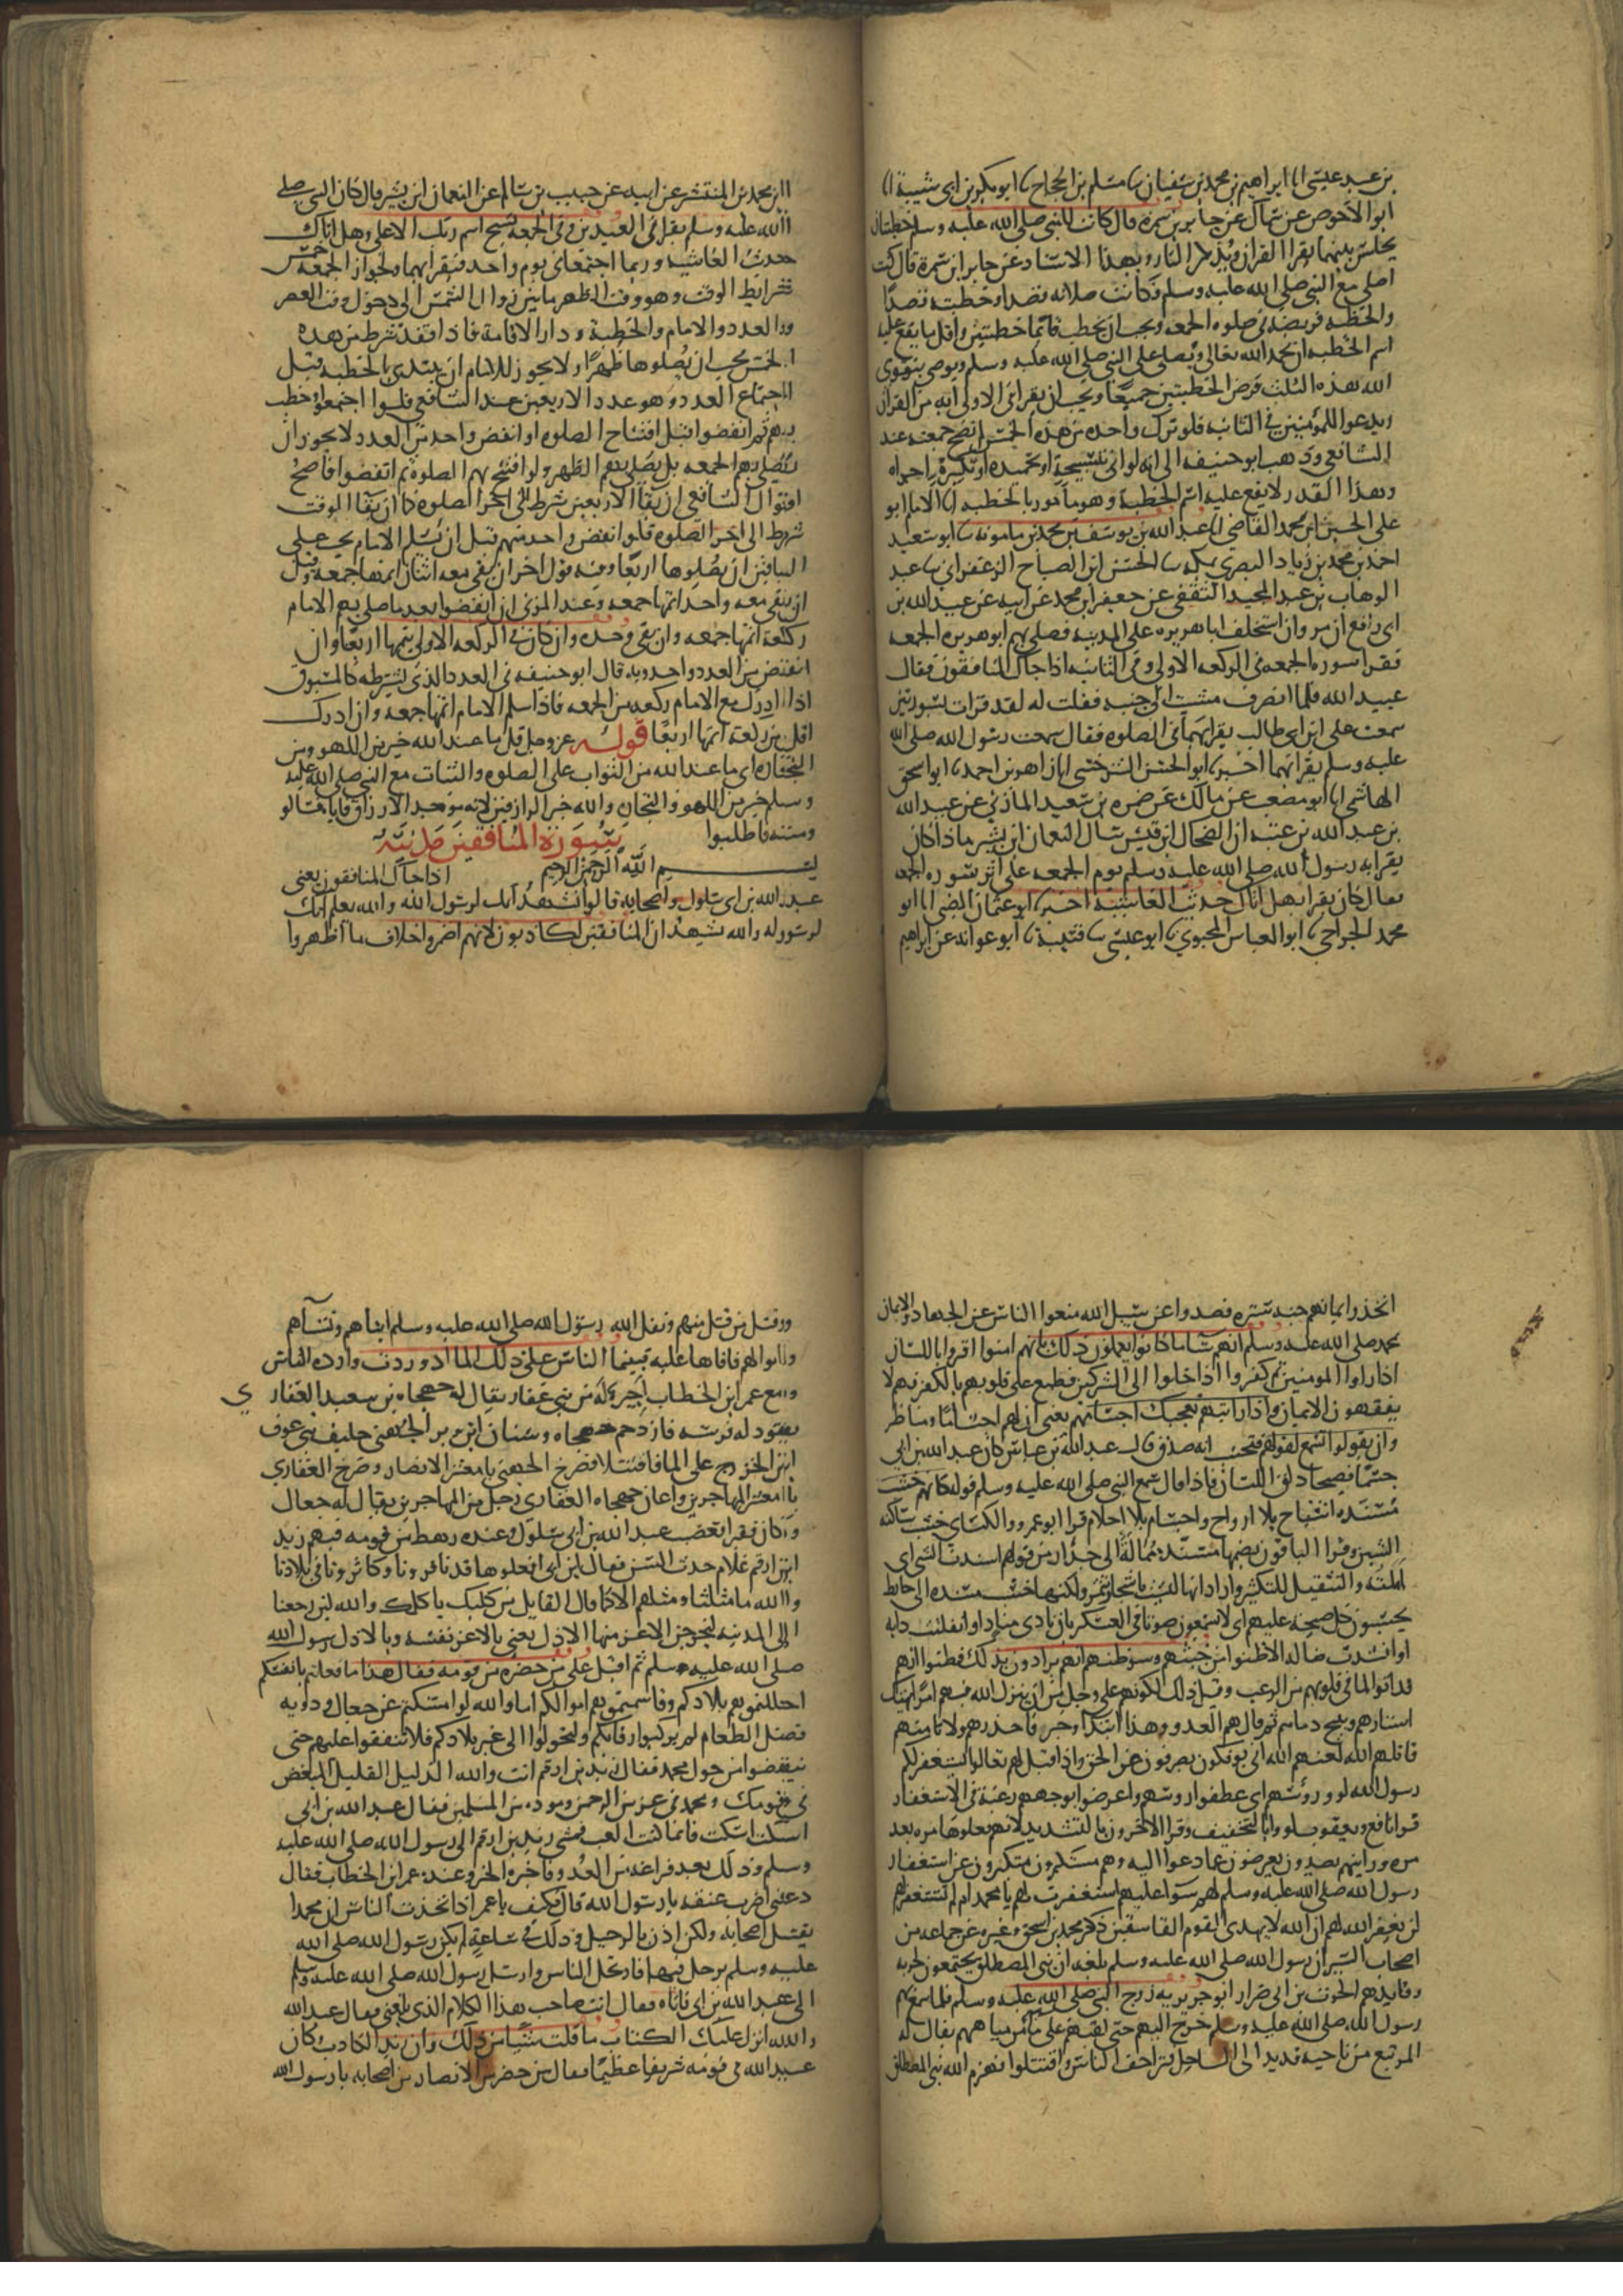 بن عبد عيسى انا ابراهيم بن محمد بن سفيان ثنا مسلم بن الحجاج ثنا ابو بكر بن ابى شيبة انا
ابو الاحوص عن سماك عن جابر بن سمرة قال كانت للنبى صلى الله عليه وسلم خطبتان
يجلس بينهما يقرا القران ويذكر الناس وبهذا الاسناد عن جابر ابن سمرة قال كنت
اصلى مع النبى صلى الله عليه وسلم وكانت صلاته قصدا وخطبته قصدا
والخطبه فريضه فى صلوه الجمعه ويجب ان يخطب قائما خطبتين واقل ما يقع عليه
اسم الخطبه ان يحمد الله تعالى ويصلى على النبى صلى الله عليه وسلم ويوصى بتقوى
الله هذه الثلث فرض الخطبتين جميعا ويجب ان يقرا فى الاولى ايه من القران
ويدعوا للمؤمنين فى الثانيه فلو ترك واحده من هذه الخمس لم تصح جمعته عند
الشافعى وذهب ابو حنيفه الى انه لو اتى بتسبيحة او تحميده او تكبيرة اجزاه
وهذا القدر لا يقع عليه اسم الخطبة وهو مامور بالخطبه انا الامام ابو
على الحسين ابن محمد القاضى انا عبد الله بن يوسف بن محمد بن مامونه ثنا ابو سعيد
احمد بن محمد بن زياد البصرى بمكه ثنا الحسن ابن الصباح الزعفرانى ثنا عبد
الوهاب بن عبد المجيد الثقفى عن جعفر ابن محمد عن ابيه عن عبيد الله بن
ابى رافع ان مروان استخلف ابا هريره على المدينه فصلى بهم ابو هريره الجمعه
فقرا سوره الجمعه فى الركعه الاولى وفى الثانيه اذا جاك المنافقون فقال
عبيد الله فلما انصرف مشيت الى جنبه فقلت له لقد قرات بسورتين
سمعت على ابن ابى طالب يقرا بهما فى الصلوه فقال سمعت رسول الله صلى الله
عليه وسلم يقرا بهما اخبرنا ابو الحسن السرخسى انا زاهر بن احمد ثنا ابو اسحق
الهاشمى انا ابو مصعب عن مالك عن ضمره بن سعيد المازنى عن عبيد الله
بن عبد الله بن عتبه ان الضحاك ابن قيس سال النعمان ابن بشير ماذا كان
يقرا به رسول الله صلى الله عليه وسلم يوم الجمعه على اثر سوره الجمعه
فقال كان يقرا بهل اتاك حديث الغاشيه اخبرنا ابو عثمان الضبى انا ابو
محمد الجراحى ثنا ابو العباس المحبوبى ثنا ابو عيسى ثنا قتيبة ثنا ابو عوانه عن ابراهيم
ابن محمد بن المنتشر عن ابيه عن حبيب بن سالم عن النعمان ابن بشير قال كان النبى صلى
الله عليه وسلم يقرا فى العيدين وفى الجمعة بسبح اسم ربك الاعلى وهل اتاك
حديث الغاشيه وربما اجتمعا فى يوم واحد فيقرا بهما ولجواز الجمعه خمس
شرايط الوقت وهو وقت الظهر ما بين زوال الشمس الى دخول وقت العصر
والعدد والامام والخطبة ودار الاقامة فاذا فقد شرط من هذه
الخمس يجب ان يصلوها ظهرا ولا يجوز للامام ان يبتدى بالخطبه قبل
اجتماع العدد وهو عدد الاربعين عند الشافعى فلو اجتمعوا وخطب
بهم ثم انفضوا قبل افتتاح الصلوه او انفض واحد من العدد لا يجوز ان
يصلى بهم الجمعه بل يصلى بهم الظهر ولو افتتح بهم الصلوة ثم انفضوا فاصح
اقوال الشافعى ان بقا الاربعين شرط الى اخر الصلوه كما ان بقا الوقت
شرط الى اخر الصلوه فلو انفض واحد منهم قبل ان يسلم الامام يجب على
الباقين ان يصلوها اربعا وفيه قول اخر ان بقى معه اثنان اتمها جمعه وقيل
ان بقى معه واحد اتمها جمعه وعند المزنى ان انفضوا بعد ما صلى بهم الامام
ركعة اتمها جمعه وان بقى وحده وان كان فى الركعه الاولى يتمها اربعا وان
انتقض من العدد واحد وبه قال ابو حنيفه فى العدد الذى يشترطه كالمسبوق
اذا ادرك مع الامام ركعه من الجمعه فاذا سلم الامام اتمها جمعه وان ادرك
اقل من ركعة اتمها اربعا قوله عز وجل قل ما عند الله خير من اللهو ومن
التجاره اى ما عند الله من الثواب على الصلوه والثبات مع النبى صلى الله عليه
وسلم خير من اللهو والتجاره والله خير الرازقين لانه موجد الارزاق فاياه فسالو
ومنه فاطلبوا سورة المنافقين مدنية
بسم الله الرحمن الرحيم اذا جاك المنافقون يعنى
عبد الله بن ابى سلول واصحابه قالوا نشهد انك لرسول الله والله يعلم انك
لرسوله والله يشهد ان المنافقين لكاذبون لانهم اضمروا خلاف ما اظهروا
اتخذوا ايمانهم جنه ستره فصدوا عن سبيل الله منعوا الناس عن الجهاد والايمان
بمحمد صلى الله عليه وسلم انهم سا ما كانوا يعملون ذلك بانهم امنوا اقروا باللسان
اذا راوا المومنين ثم كفروا اذا خلوا الى المشركين فطبع على قلوبهم بالكفر فهم لا
يفقهون الايمان واذا رايتهم تعجبك اجسامهم يعنى ان لهم اجساما ومناظر
وان يقولوا تسمع لقولهم فتحسب انه صدق قال عبد الله بن عباس كان عبد الله بن ابى
جسيما فصيحا ذلق اللسان فاذا قال سمع النبى صلى الله عليه وسلم قوله كانهم خشب
مسنده اشباح بلا ارواح واجسام بلا احلام قرا ابو عمرو والكساى خشب ساكنه
الشين وقرا الباقون بضمها مسنده ممالة الى جدار من قولهم اسندت الشى اى
املته والتثقيل للتكثير واراد انها ليست باشجار تثمر ولكنها خشب مسنده الى حايط
يحسبون كل صيحة عليهم اى لا يسمعون صوتا فى العسكر بان نادى مناد او انفلتت دابه
او انشدت ضاله الا ظنوا من جبنهم وسو ظنهم انهم يرادون بذلك فظنوا انهم
قد اتوا لما فى قلوبهم من الرعب وقيل ذلك لكونهم على وجل من ان ينزل الله فيهم امرا يهتك
استارهم ويبيح دماهم ثم قال هم العدو وهذا ابتدا وخبر فاحذرهم ولا تامنهم
قاتلهم الله لعنهم الله انى يوفكون يصرفون عن الحق واذا قيل لهم تعالوا يستغفر لكم
رسول الله لووا رؤسهم اى عطفوا روسهم واعرضوا بوجههم رغبة عن الاستغفار
قرا نافع ويعقوب لووا بالتخفيف وقرا الاخرون بالتشديد لانهم فعلوها مره بعد
مره ورايتهم يصدون يعرضون عما دعوا اليه وهم مستكبرون متكبرون عن استغفار
رسول الله صلى الله عليه وسلم لهم سوا عليهم استغفرت لهم يا محمد ام لم تستغفر لهم
لن يغفر الله لهم ان الله لا يهدى القوم الفاسقين ذكر محمد بن اسحق وغيره عن جماعه من
اصحاب السير ان رسول الله صلى الله عليه وسلم بلغه ان بنى المصطلق يجتمعون لحربه
وقايدهم الحرث بن ابى ضرار ابو جويريه زوج النبى صلى الله عليه وسلم فلما سمع بهم
رسول الله صلى الله عليه وسلم خرج اليهم حتى لقيهم على ما من مياههم يقال له
المريسع من ناحيه قديد الى الساحل فتزاحف الناس واقتتلوا فهزم الله بنى المصطلق
وقتل من قتل منهم ونفل الله رسول الله صلى الله عليه وسلم ابناهم ونسآهم
واموالهم فافاها عليه فبينما الناس على ذلك الما اذ وردت وارده الناس
ومع عمر ابن الخطاب اجير له من بنى غفار يقال له جهجاه بن سعيد الغفارى
يقود له فرسه فازدحم جهجاه وسنان ابن وبر الجهنى حليف بنى عوف
ابن الخزرج على الما فاقتتلا فصرخ الجهنى يا معشر الانصار وصرخ الغفارى
يا معشر المهاجرين واعان جهجاه الغفارى رجل من المهاجرين يقال له جعال
وكان فقيرا فغضب عبد الله بن ابى سلول وعنده رهط من قومه فيهم زيد
ابن ارقم غلام حدث السن فقال ابن ابى افعلوها قد نافرونا وكاثرونا فى بلادنا
والله ما مثلنا ومثلهم الا كما قال القايل سمن كلبك ياكلك والله لين رجعنا
الى المدينه ليخرجن الاعز منها الاذل يعنى بالاعز نفسه وبالاذل رسول الله
صلى الله عليه وسلم ثم اقبل على من حضره من قومه فقال هذا ما فعلتم بانفسكم
احللتموهم بلادكم وقاسمتموهم اموالكم اما والله لو امسكتم عن جعال وذويه
فضل الطعام لم يركبوا رقابكم ولتحولوا الى غير بلادكم فلا تنفقوا عليهم حتى
ينفضوا من حول محمد فقال زيد بن ارقم انت والله الذليل القليل المبغض
فى قومك ومحمد فى عز من الرحمن وموده من المسلمين فقال عبد الله بن ابى
اسكت اسكت فانما كنت العب فمشى زيد بن ارقم الى رسول الله صلى الله عليه
وسلم وذلك بعد فراغه من العدو فاخبره الخبر وعنده عمر ابن الخطاب فقال
دعنى اضرب عنقه يا رسول الله قال فكيف يا عمر اذا تحدث الناس ان محمدا
يقتل اصحابه ولكن اذن بالرحيل وذلك فى ساعة لم يكن رسول الله صلى الله
عليه وسلم يرحل فيها فارتحل الناس وارسل رسول الله صلى الله عليه وسلم
الى عبد الله بن ابى فاتاه فقال انت صاحب هذا الكلام الذى بلغنى فقال عبد الله
والله انزل عليك الكتاب ما قلت شيا من ذلك وان زيد الكاذب كان
عبد الله فى قومه شريفا عظيما فقال من حضر من الانصار من اصحابه يا رسول الله